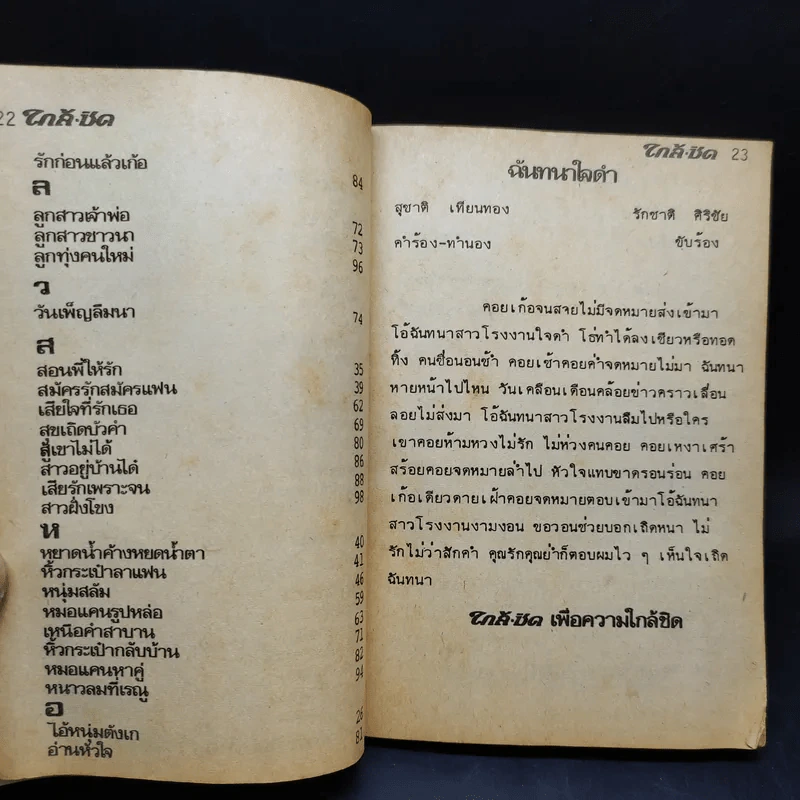 22 ใกล้·ชิด
รักก่อนแล้วเก้อ 84
ล
ลูกสาวเจ้าพ่อ 72
ลูกสาวชาวนา 73
ลูกทุ่งคนใหม่ 96
ว
วันเพ็ญลืมนา 74
ส
สอนพี่ให้รัก 35
สมัครรักสมัครแฟน 39
เสียใจที่รักเธอ 62
สุขเถิดบัวคำ 69
สู่เขาไม่ได้ 80
สาวอยู่บ้านได๋ 86
เสียรักเพราะจน 88
สาวฝั่งโขง 98
ห
หยาดน้ำค้างหยดน้ำตา 40
หิ้วกระเป๋าลาแฟน 41
หนุ่มสลัม 46
หมอแคนรูปหล่อ 59
เหนือคำสาบาน 63
หิ้วกระเป๋ากลับบ้าน 71
หมอแคนหาคู่ 82
หนาวลมที่เรณู 94
อ
ไอ้หนุ่มตังเก 26
อ่านหัวใจ 81
ใกล้·ชิด 23
ฉันทนาใจดำ
สุชาติ เทียนทอง รักชาติ ศิริชัย
คำร้อง-ทำนอง ขับร้อง
คอยเก้อจนสายไม่มีจดหมายส่งเข้ามา
โอ้ฉันทนาสาวโรงงานใจดำ โธ่ทำได้ลงเชียวหรือทอด
ทิ้ง คนชื่อนอนช้ำ คอยเช้าคอยค่ำจดหมายไม่มา ฉันทนา
หายหน้าไปไหน วันเคลื่อนเดือนคล้อยข่าวคราวเลื่อน
ลอยไม่ส่งมา โอ้ฉันทนาสาวโรงงานลืมไปหรือใคร
เขาคอยห้ามหวงไม่รัก ไม่ห่วงคนคอย คอยเหงาเศร้า
สร้อยคอยจดหมายล่ำไป หัวใจแทบขาดรอนร่อน คอย
เก้อเดียวดายเฝ้าคอยจดหมายตอบเข้ามาโอ้ฉันทนา
สาวโรงงานงามงอน ขอวอนช่วยบอกเถิดหนา ไม่
รักไม่ว่าสักคำ คุณรักคุณย่ำก็ตอบผมไว ๆ เห็นใจเถิด
ฉันทนา
ใกล้·ชิด เพื่อความใกล้ชิด